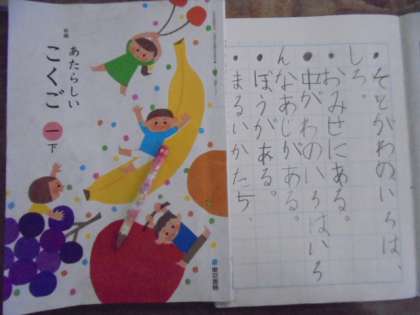 新編
あたらしい
こくご
一
下
東京書籍
そとがわのいろは、
しろ。
おみせにある。
中がわのいろはいろ
んなあじがある。
ぼうがある。
まるいかたち、